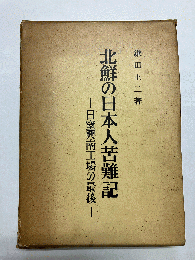 鎌田正二著
北鮮の日本人苦難記
―日窒興南工場の最後―